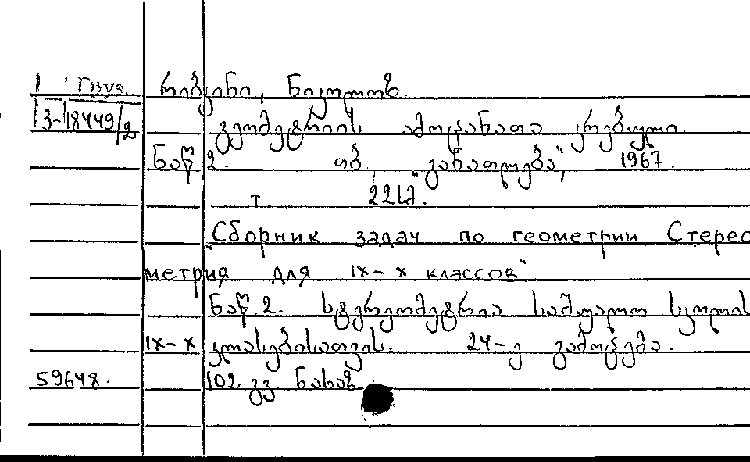 1 Груз. რიბკინი, ნიკოლოზ.
З-18449/2 გეომეტრიის ამოცანათა კრებული.
ნაწ 2. თბ. "განათლება", 1967.
т 22 კ.
"Сборник задач по геометрии Стерео
метрия для IX-X классов"
ნაწ 2. სტერეომეტრია საშუალო სკოლის
IX-X კლასებისათვის. 24-ე გამოცემა.
59648. 102. გვ ნახაზ